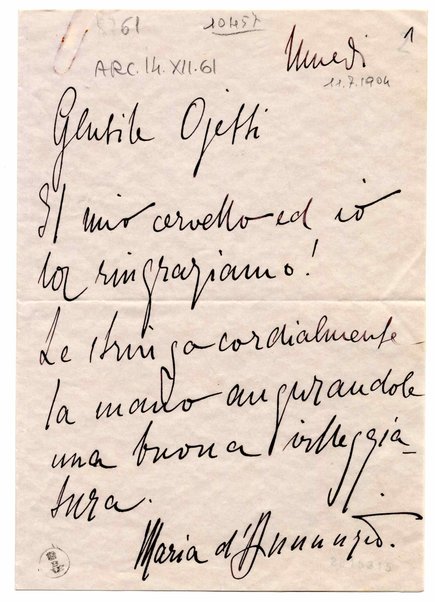 8761 10457
Lunedì 1
ARC.14.XII.61
11.7.1904
Gentile Ojetti
Il mio cervello ed io
La ringraziamo!
Le stringo cordialmente
la mano augurandole
una buona villeggia-
tura.
Maria d'Annunzio.